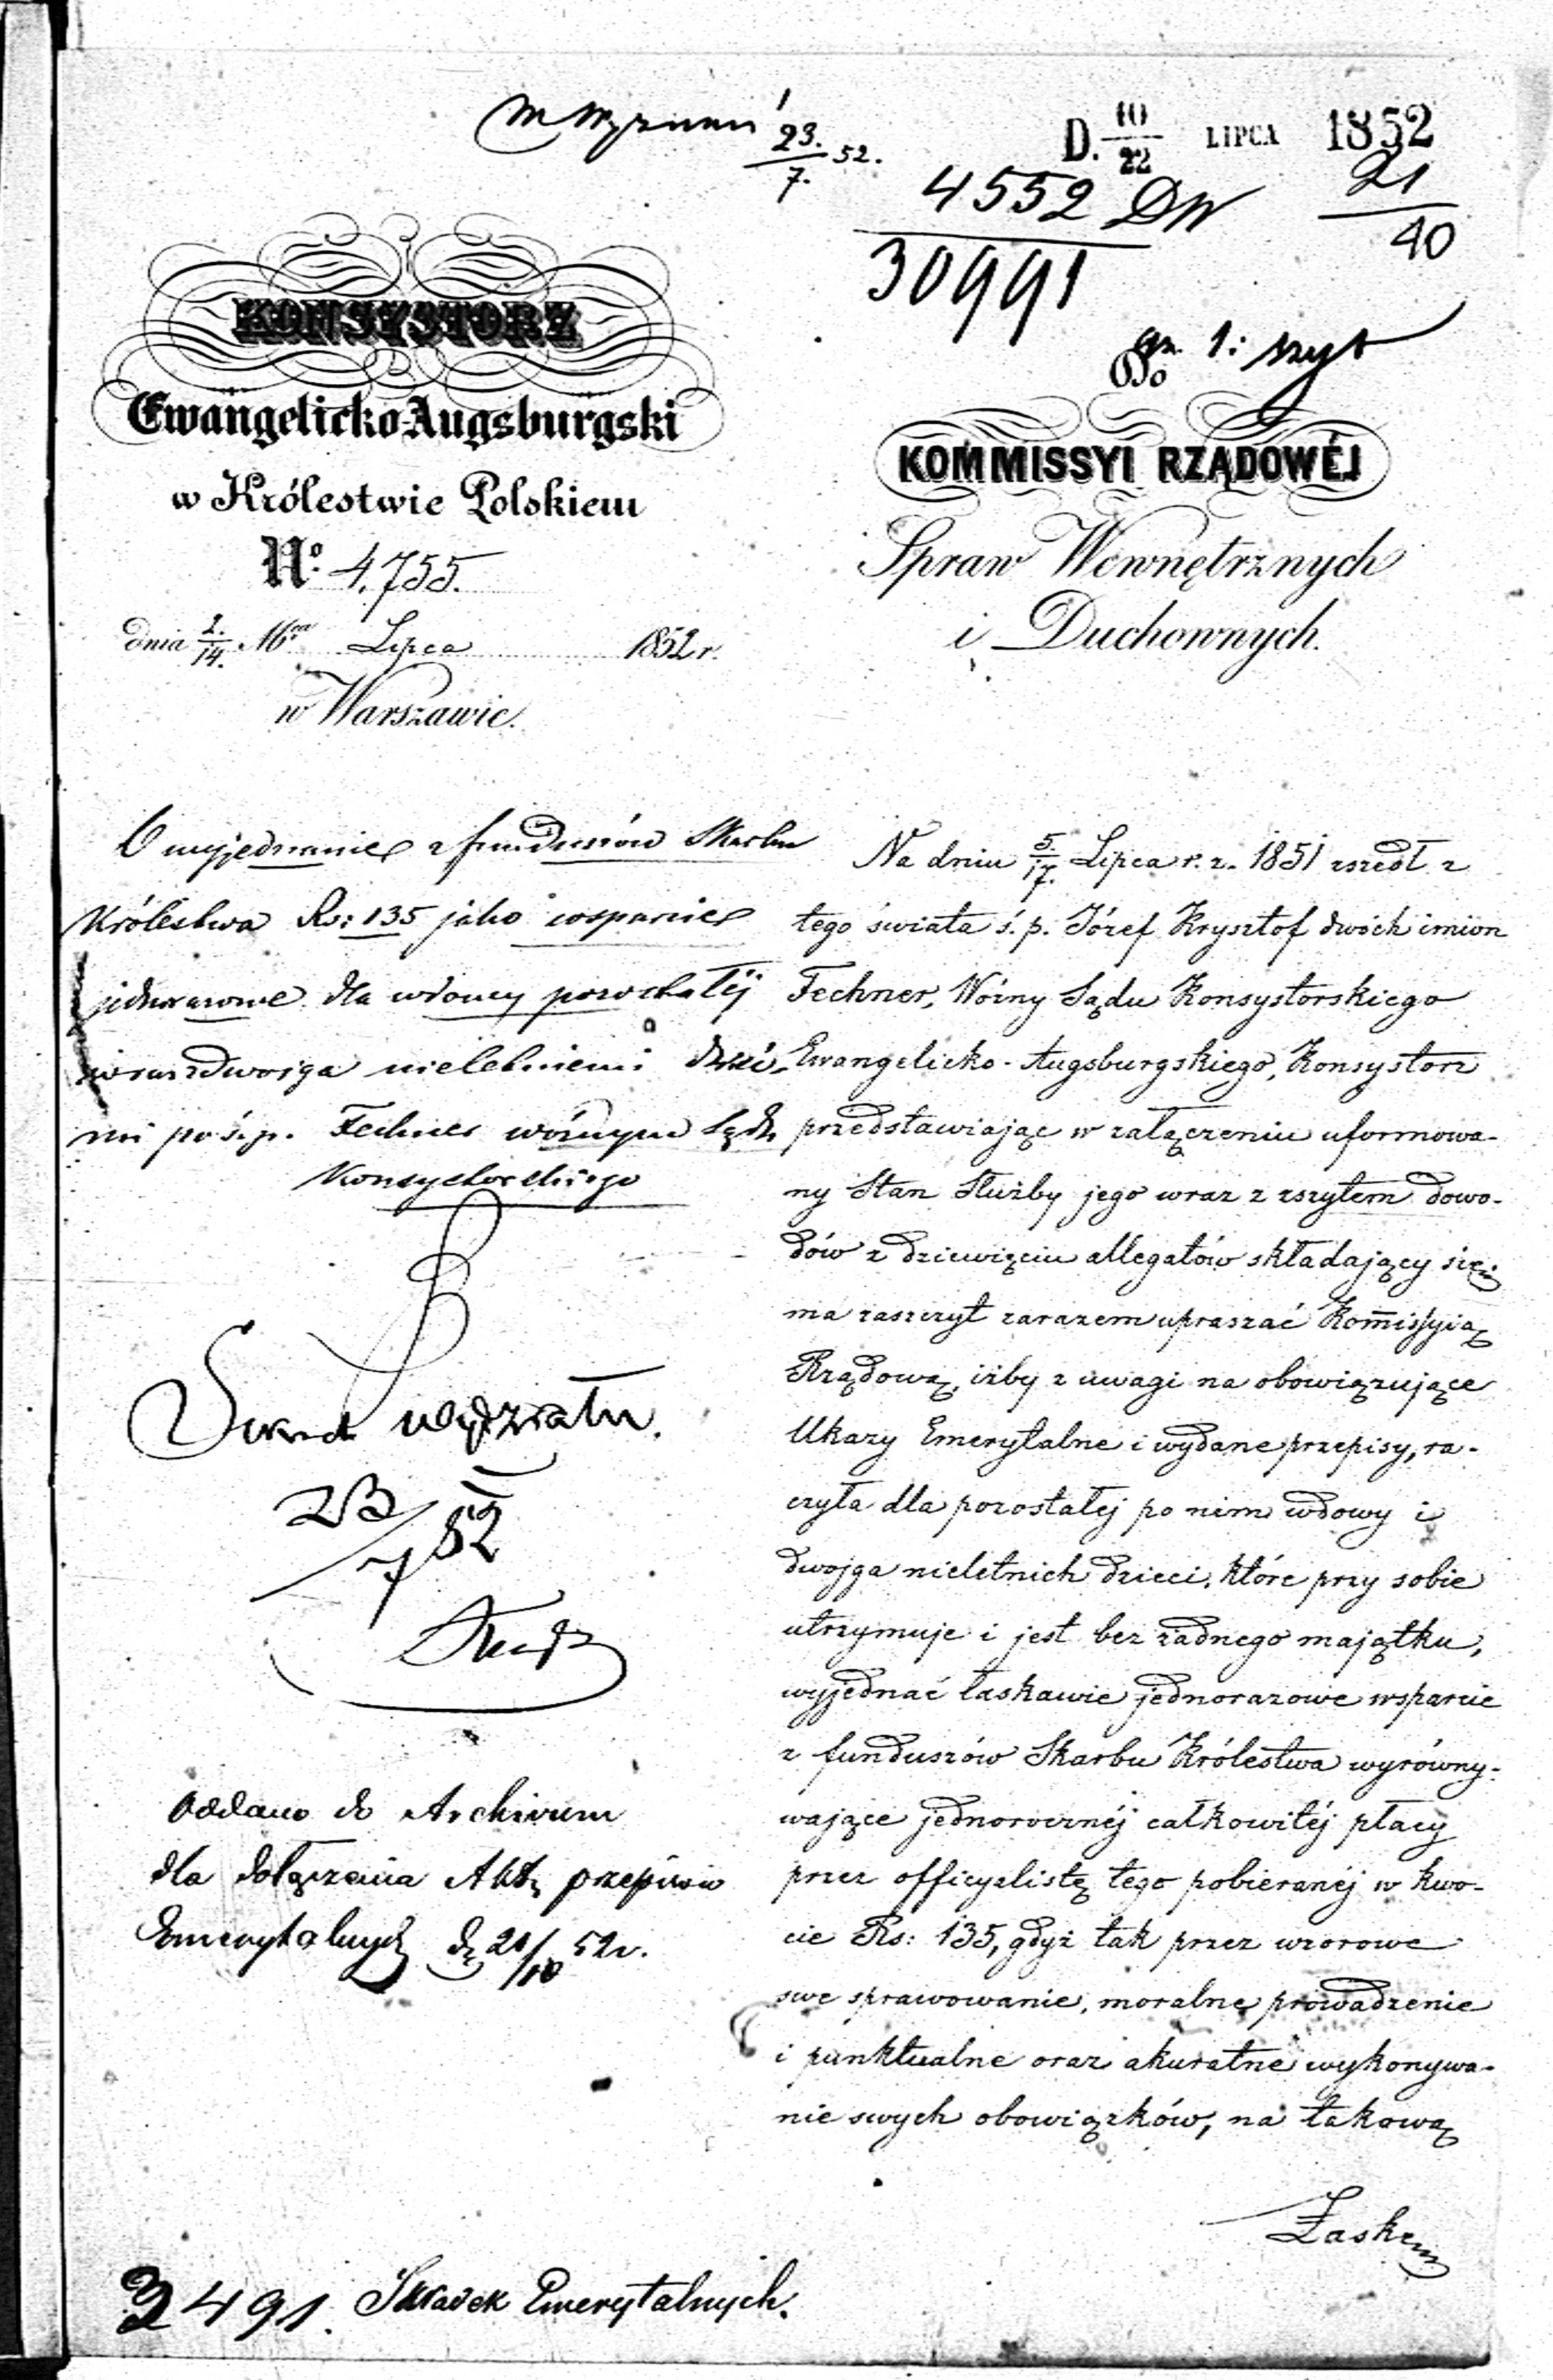 23.
7. 52.
D. 10/22 LIPCA 1852
4552 DW
21
40
30991
KONSYSTORZ
Ewangelicko-Augsburgski
w Królestwie Polskiem
Nº 4,755.
dnia 2./14. Lipca 1852 r.
w Warszawie.
Do
KOMMISSYI RZĄDOWÉJ
Spraw Wewnętrznych
i Duchownych.
O wyjednanie z funduszów Skarbu
Królestwa Rs: 135 jako wsparcie
jednorazowe dla wdowy pozostałéj
dwojga nieletniemi dzieć-
mi po ś. p. Fechner woźnym Sądu
Konsystorskiego
wydziału.
23/7 52
Oddano do Archiwum
dla dołączenia Akt przepisów
Emerytalnych 52 r.
Na dniu 5./17. Lipca r. z. 1851 zszedł z
tego świata ś. p. Józef Krysztof dwóch imion
Fechner, Woźny Sądu Konsystorskiego
Ewangelicko-Augsburgskiego, Konsystorz
przedstawiając w załączeniu uformowa-
ny Stan Służby jego wraz z zszytem dowo-
dów z dziewięciu allegatów składający się;
ma zaszczyt zarazem upraszać Kom̄issyią
Rządową, iżby z uwagi na obowiązujące
Ukazy Emerytalne i wydane przepisy, ra-
czyła dla pozostałej po nim wdowy i
dwojga nieletnich dzieci, które przy sobie
utrzymuje i jest bez żadnego majątku,
wyjednać łaskawie jednorazowe wsparcie
z funduszów Skarbu Królestwa wyrówny-
wające jednorocznéj całkowitéj płacy
przez officyalistę tego pobieranéj w kwo-
cie Rs: 135, gdyż tak przez wzorowe
swe sprawowanie, moralne prowadzenie
i punktualne oraz akuratne wykonywa-
nie swych obowiązków, na takową
Łaskę
2491. Składek Emerytalnych.